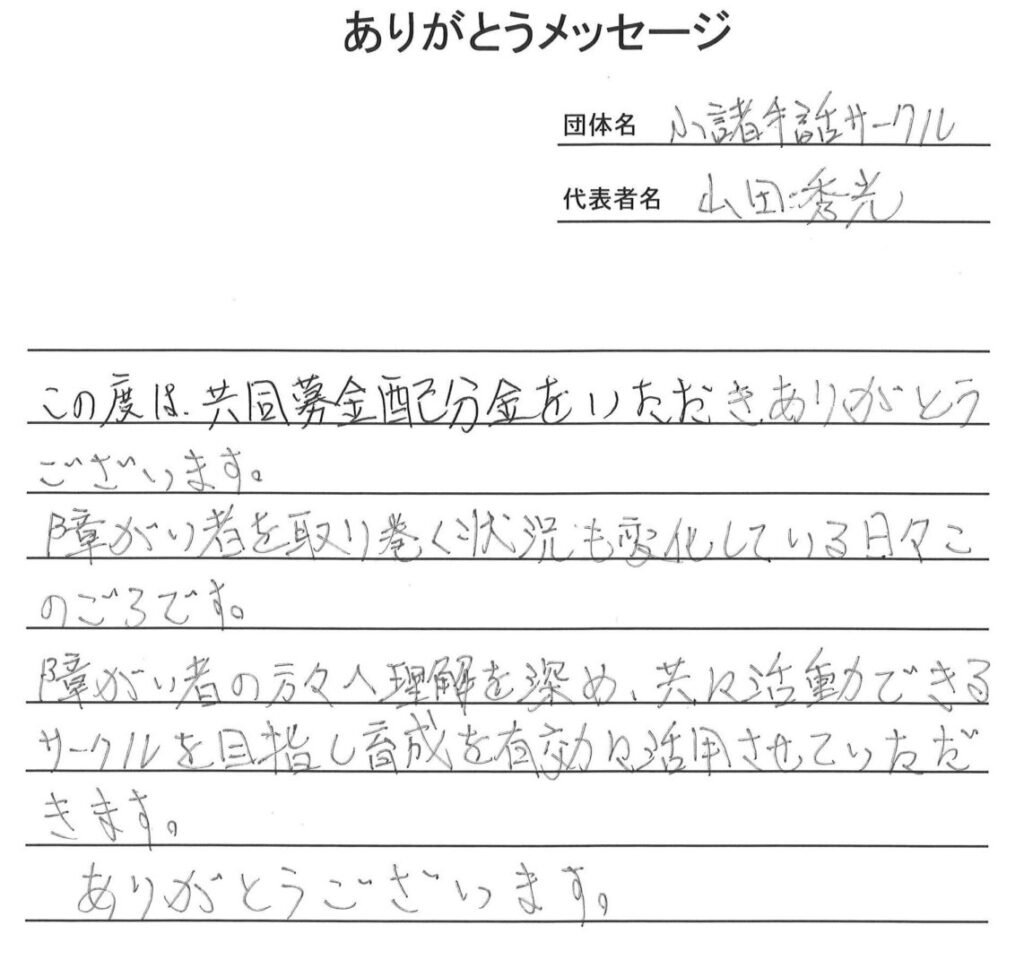 ありがとうメッセージ
団体名 小諸手話サークル
代表者名 山田秀光
この度は、共同募金配分金をいただきありがとう
ございます。
障がい者を取り巻く状況も変化している日々こ
のごろです。
障がい者の方々へ理解を深め、共に活動できる
サークルを目指し育成を有効に活用させていただ
きます。
ありがとうございます。